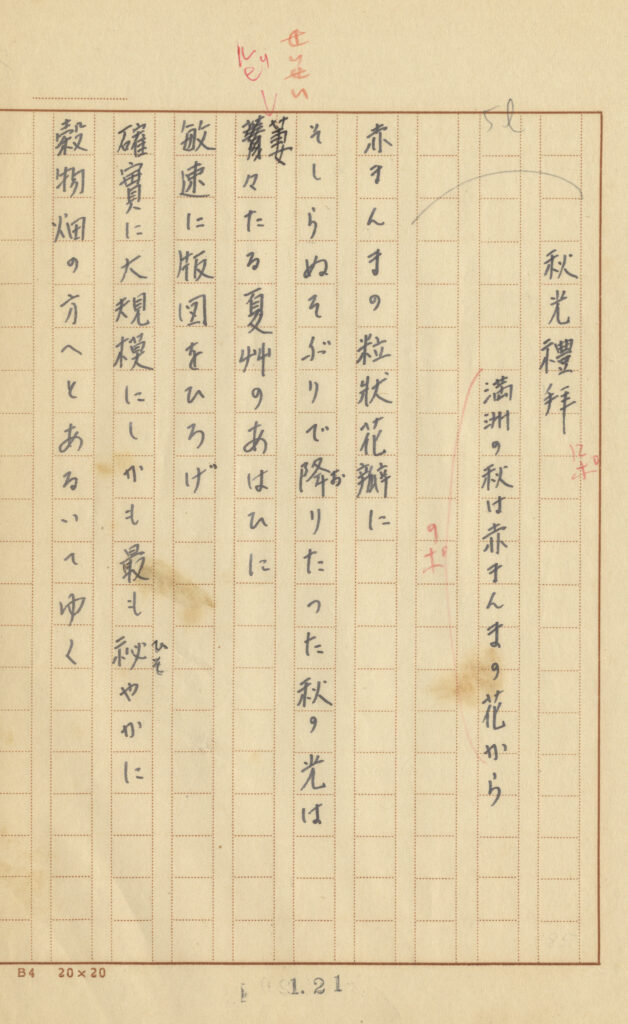 5l
秋光禮拜
12ポ
満洲の秋は赤まんまの花から
9ポ
赤まんまの粒状花瓣に
そしらぬそぶりで降りたった秋の光は
お
せいせい
ルビ
萋々たる夏艸のあはひに
敏速に版図をひろげ
確實に大規模にしかも最も祕やかに
ひそ
穀物畑の方へとあるいてゆく
B4 20×20
1.21